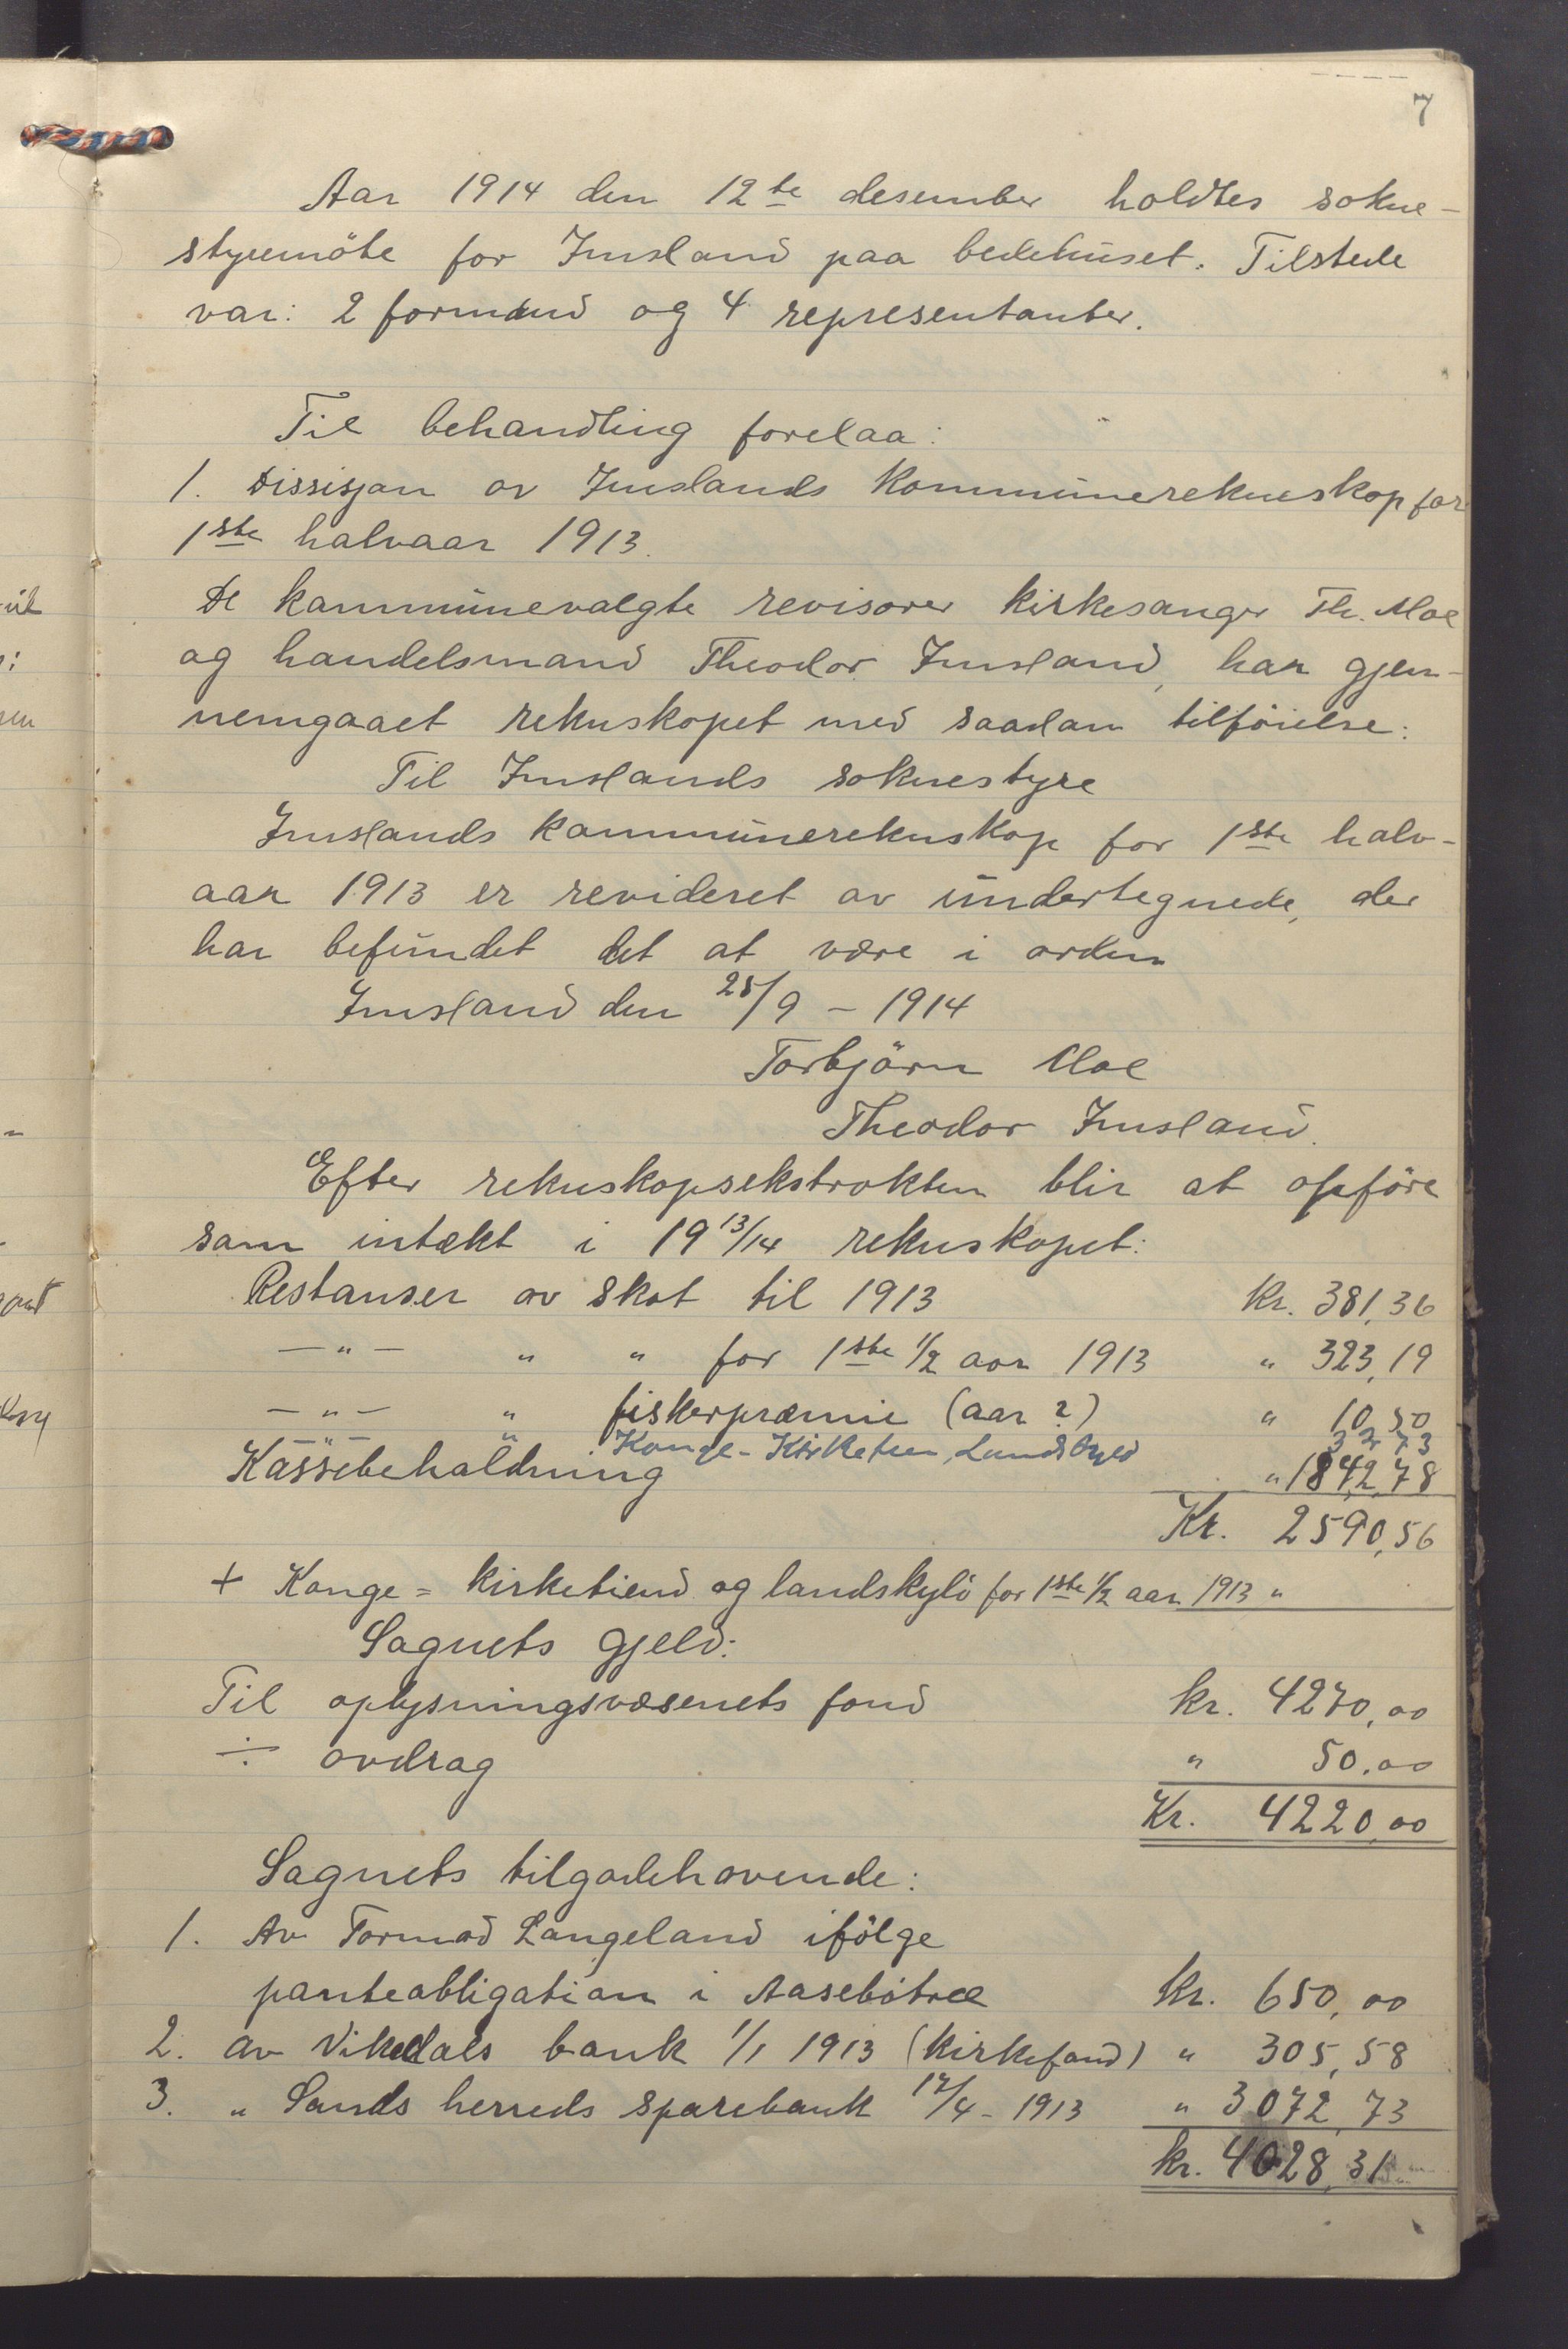 7
Aar 1914 den 12te desember holdtes sokne-
styremöte for Imsland paa bedehuset. Tilstede
var: 2 formænd og 4 representanter.
Til behandling forelaa:
1. Dissisjon av Imslands kommunerekneskap for
1ste halvaar 1913.
De kommunevalgte revisorer kirkesanger Th. Moe
og handelsmand Theodor Imsland, har gjen-
nemgaaet rekneskapet med saadan tilföielse:
Til Imslands soknestyre
Imslands kommunerekneskap for 1ste halv-
aar 1913 er revideret av undertegnede, der
har befundet det at være i orden
Imsland den 25/9 - 1914
Torbjörn Moe
Theodor Imsland.
Efter rekneskapsekstrakten blir at opföre
som intækt i 19 13/14 rekneskapet:
Restanser av skat til 1913 Kr. 381,36
—"— " " for 1ste 1/2 aar 1913 " 323,19
—"— " fiskerpræmie (aar ?) " 10,50
—"— " Konge- Kirketien, Landskyld 32,73
Kassebehaldning " 1842,78
Kr. 2590,56
+ Konge= kirketiend og landskyld for 1ste 1/2 aar 1913 "
Sognets gjeld:
Til oplysningsvæsenets fond kr. 4270,00
÷ avdrag " 50,00
Kr. 4220,00
Sognets tilgodehavende:
1. Av Tormod Langeland ifölge
panteobligation i Aasebötræ kr. 650,00
2. av Vikedals bank 1/1 1913 (kirkefond) " 305,58
3. " Sands herreds sparebank 17/4 - 1913 " 3072,73
kr. 4028,31